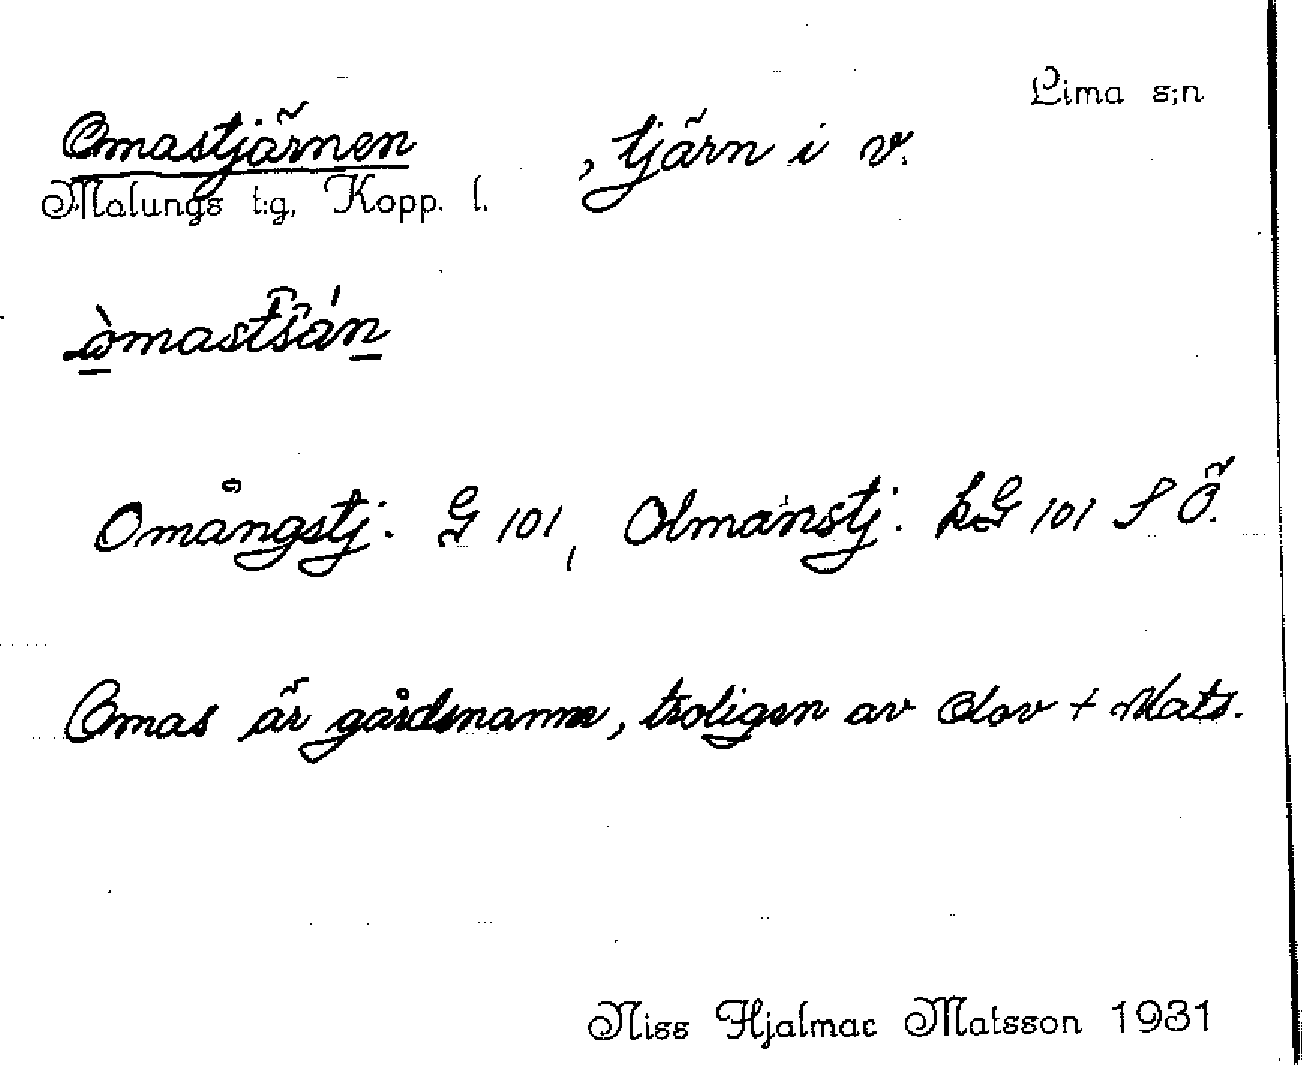 Lima s:n
Omastjärnen, tjärn i v.
Malungs t:g, Kopp. l.
òmastšán
Omångstj. G 101, Olmånstj. kG 101 S Ö.
Omas är gårdsnamn, troligen av Olov + Mats.
Niss Hjalmar Matsson 1931